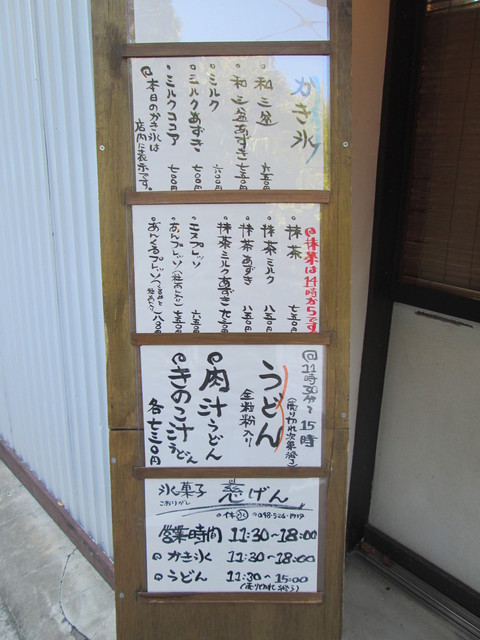 かき氷
・和三盆 六五〇円
・和三盆あずき 七五〇円
・ミルク 六〇〇円
・ミルクあずき 七〇〇円
・ミルクココア 七〇〇円
@本日のかき氷は
店内に表示です。
@抹茶は14時からです
・抹茶 七五〇円
・抹茶ミルク 八五〇円
・抹茶あずき 八五〇円
・抹茶ミルクあずき 九五〇円
・エスプレッソ 六五〇円
・あんプレッソ
@11時30分〜15時
(売り切れ次第終了)
うどん
全粒粉入り
@肉汁うどん
@きのこ汁うどん
各七三〇円
氷菓子 慈げん
こおりがし
・休 水 @048-526-1719
営業時間 11:30〜18:00
@かき氷 11:30〜18:00
@うどん 11:30〜15:00
(売り切れ終了)